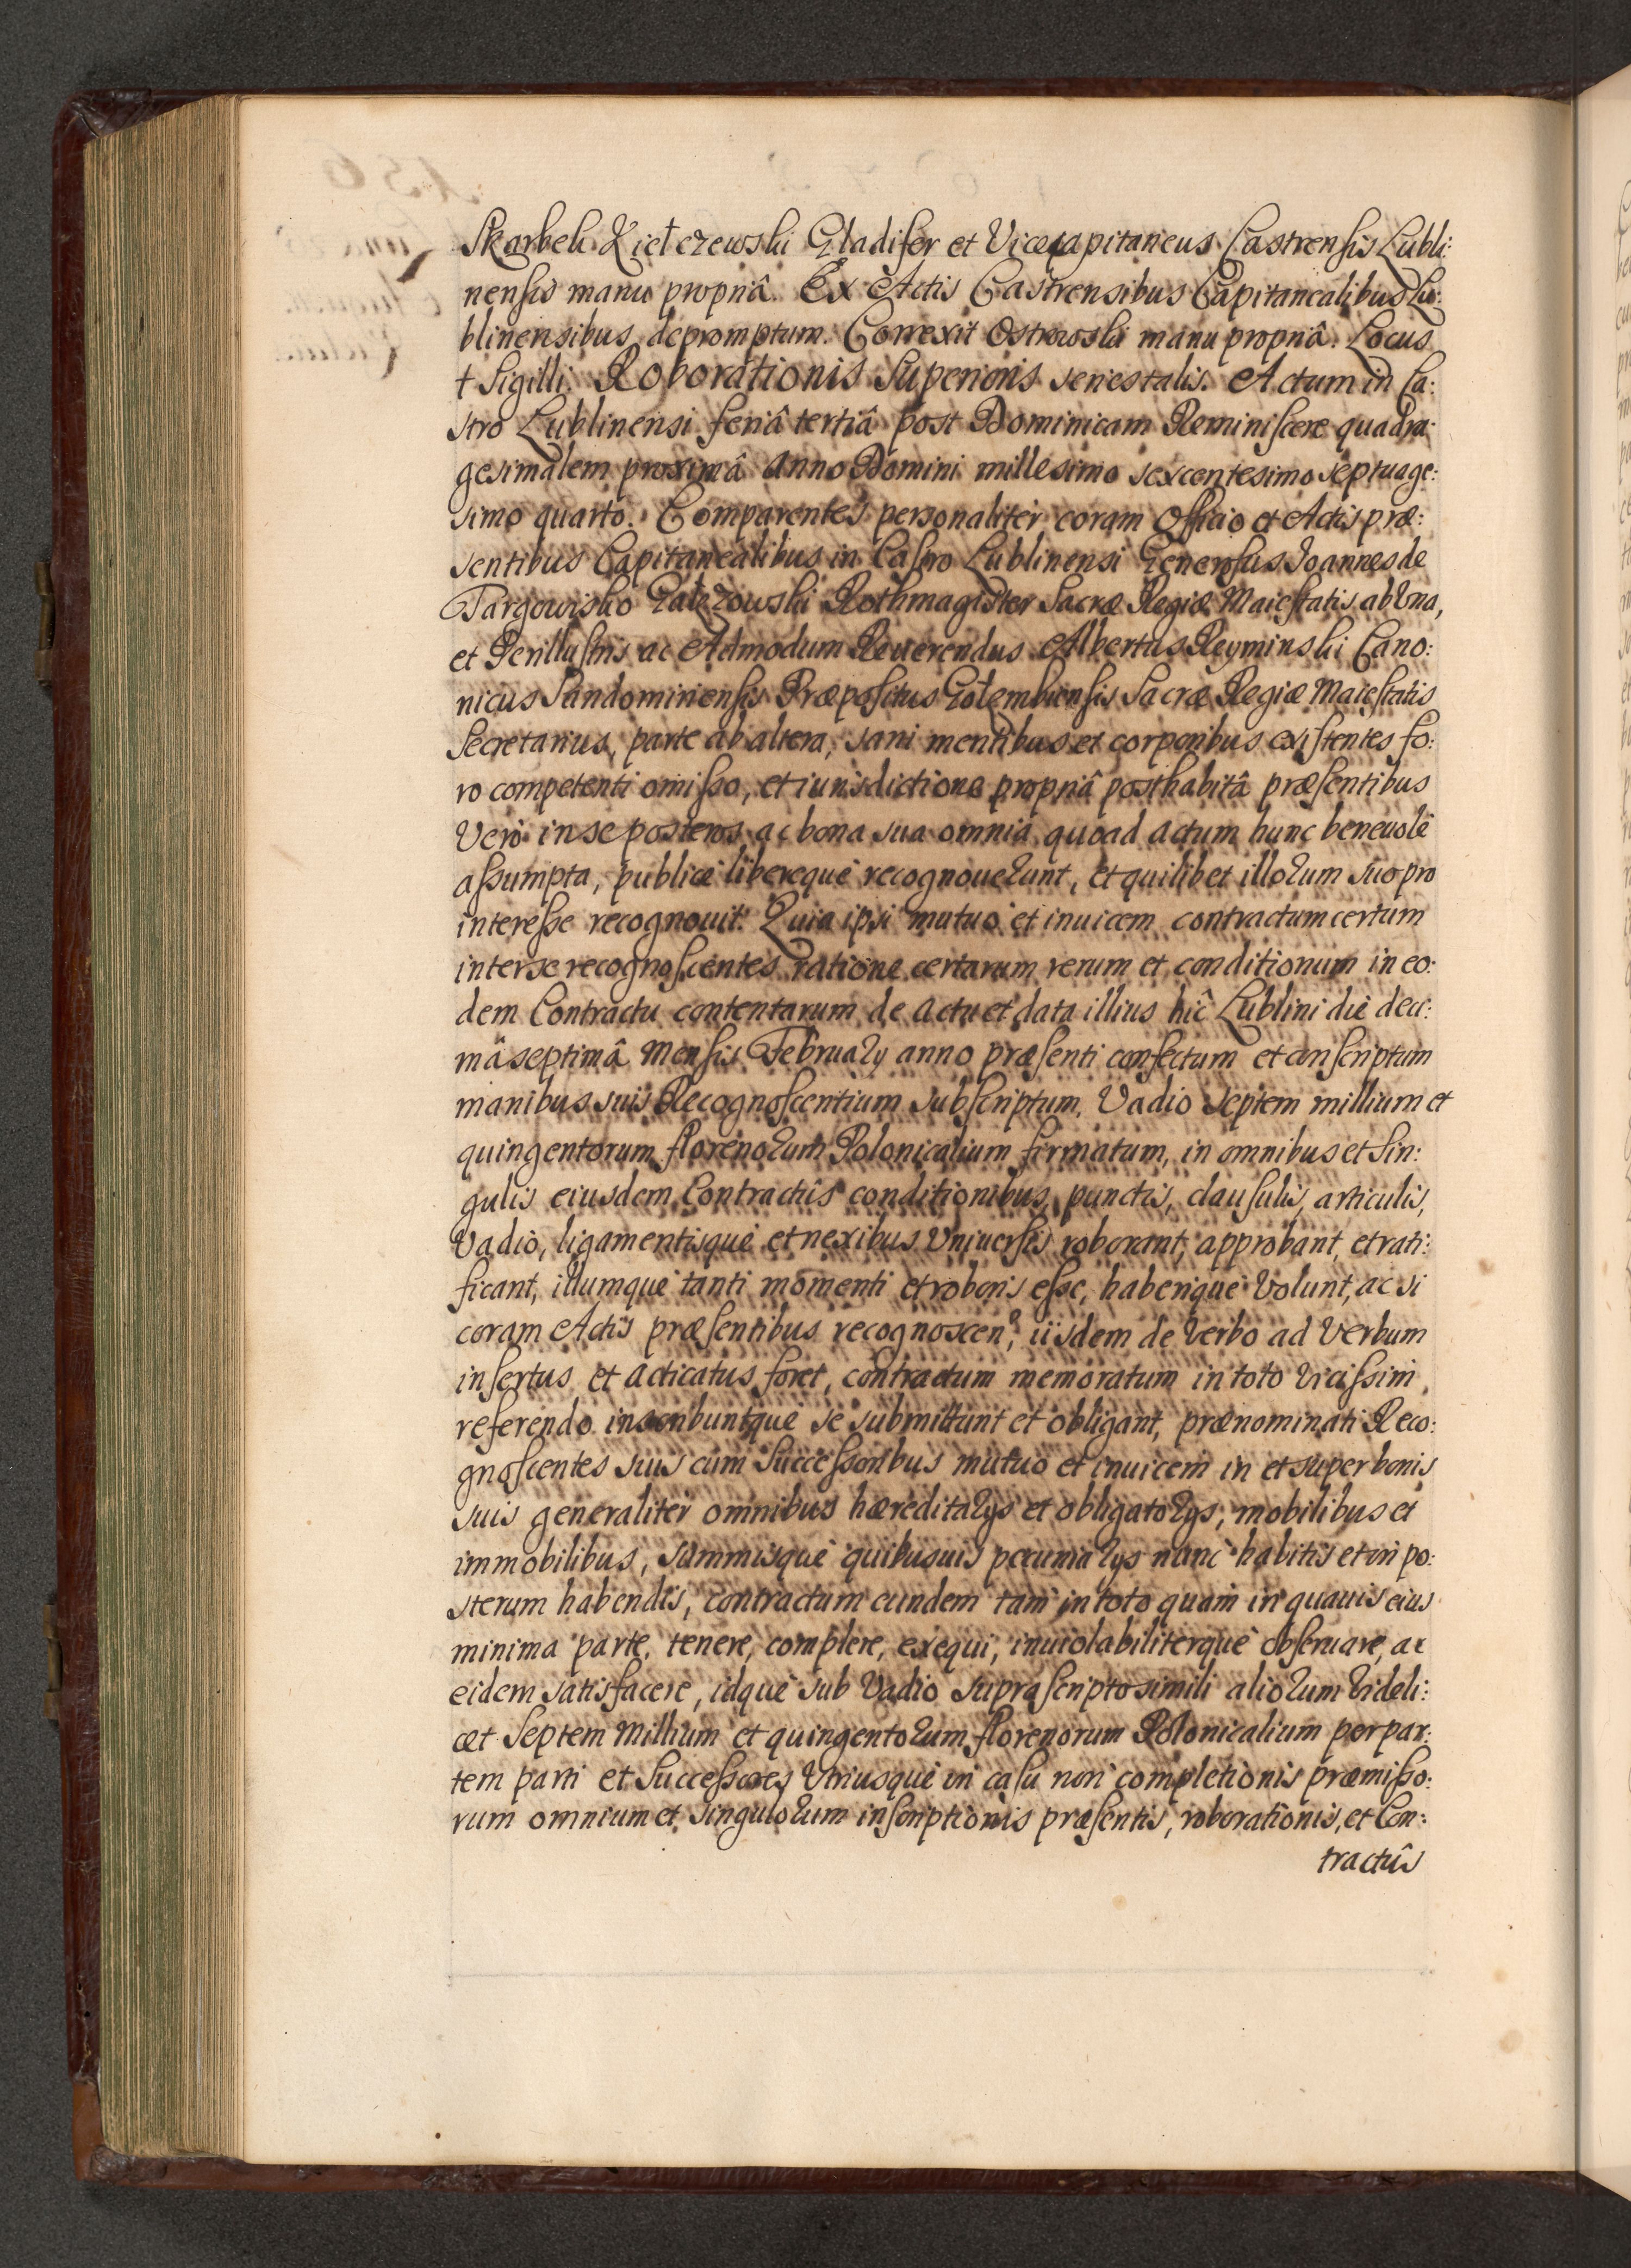 Skarbek Kiełczewski Gladifer et Vicecapitaneus Castrensis Lubli:
nensis manu propriâ. Ex Actis Castrensibus Capitanealibus Lu:
blinensibus depromptum. Correxit Ostrowski manu propriâ. Locus
† Sigilli. Roborationis Superioris series talis. Actum in Ca:
stro Lublinensi feriâ tertiâ post Dominicam Reminiscere quadra:
gesimalem proximâ Anno Domini millesimo sexcentesimo septuage:
simo quarto. Comparentes personaliter coram Officio et Actis præ:
sentibus Capitanealibus in Castro Lublinensi Generosus Joannes de
Targowisko Gałęzowski Rothmagister Sacræ Regiæ Maiestatis ab Una,
et Perillustris ac Admodum Reuerendus Albertus Reyminski Cano:
nicus Sandomiriensis Præpositus Gołembiensis Sacræ Regiæ Maiestatis
Secretarius, parte ab altera, sani mentibus et corporibus existentes fo:
ro competenti omisso, et iurisdictione propriâ posthabitâ præsentibus
Verò in se posteros ac bona sua omnia quoad actum hunc beneuolè
assumpta, publicè liberequè recognouerunt, et quilibet illorum suo pro
interesse recognouit. Quia ipsi mutuo et inuicem contractum certum
inter se recognoscentes ratione certarum rerum et conditionum in eo:
dem Contractu contentarum de actu et data illius hîc Lublini die deci:
mâ septimâ Mensis Februarÿ anno præsenti confectum et conscriptum
manibus suis Recognoscentium subscriptum, Vadio Septem millium et
quingentorum florenorum Polonicalium firmatum, in omnibus et Sin:
gulis eiusdem Contractûs conditionibus, punctis, clausulis, articulis,
Vadio, ligamentisquè et nexibus Vniuersis roborant, approbant et rati:
ficant, illumquè tanti momenti et roboris esse, haberiquè Volunt, ac si
coram Actis præsentibus recognoscen?, iisdem de Verbo ad Verbum
insertus et acticatus foret, contractum memoratum in toto Vicissim
referendo inscribuntquè se submittunt et obligant, prænominati Reco:
gnoscentes suis cum Successoribus mutuo et inuicem in et super bonis
suis generaliter omnibus hæreditarÿs et obligatorÿs, mobilibus et
immobilibus, summisquè quibusuis pecuniarÿs nunc habitis et in po:
sterum habendis, contractum eundem tam in toto quam in quauis eius
minima parte, tenere, complere, exequi, inuiolabiliterquè obseruare, ac
eidem satisfacere, idquè sub Vadio suprascripto simili aliorum Videli:
cet Septem Millium et quingentorum florenorum Polonicalium per par:
tem parti et Successores Vtriusquè in casu non completionis præmisso:
rum omnium et singulorum inscriptionis præsentis, roborationis, et Con:
tractûs